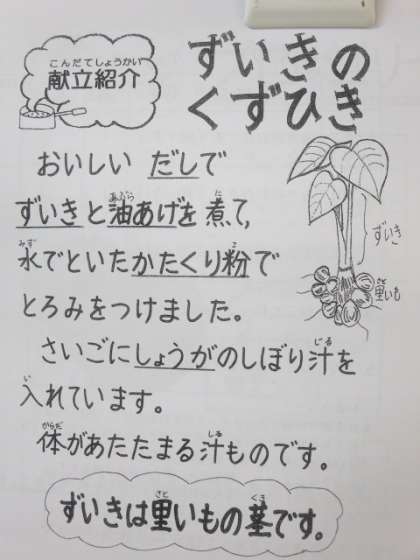 こんだてしょうかい
献立紹介
ずいきの
くずひき
おいしい だしで
ずいきと油あげを煮て、
水でといたかたくり粉で
とろみをつけました。
さいごにしょうがのしぼり汁を
入れています。
体があたたまる汁ものです。
ずいき
里いも
ずいきは里いもの茎です。